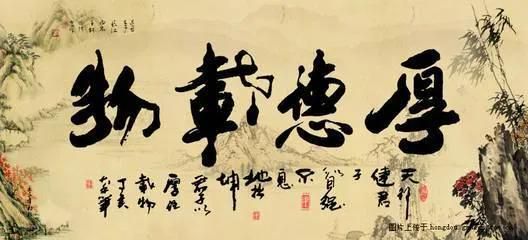 厚德載物
天行
健君
子
以自強
不
息
地勢
坤
君子以
厚德
載物
丁亥
图片上传于